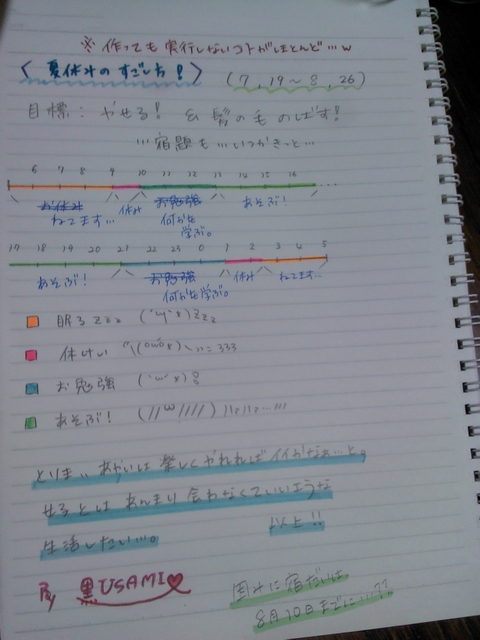 ※ 作っても実行しないコトがほとんど…w
〈 夏休みのすごし方！ 〉 (7,19〜8,26)
目標：やせる！ & 髪の毛のばす！
…宿題も…いつかきっと…
6 7 8 9 10 11 12 13 14 15 16 …
お休み 休み お勉強 あそぶ！
ねてます… 何かを学ぶ。
17 18 19 20 21 22 23 0 1 2 3 4 5
あそぶ！ お勉強 休み ねてます…
何かを学ぶ。
眠る zzz
休けい 333
お勉強
あそぶ！
とりま、 楽しくやれればイイかなぁ…と。
せるとは あんまり会わなくていいような
生活したい…。 以上!!
By 黒USAMI♡
因みに宿だいは
8月10日までに…??